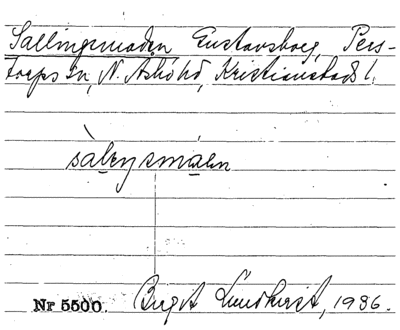 Sallingmaden Gustavsborg, Pers-
torps sn, N. Åsbo hd, Kristianstads l.
Nr 5500. Birgit Lundkvist, 1936.